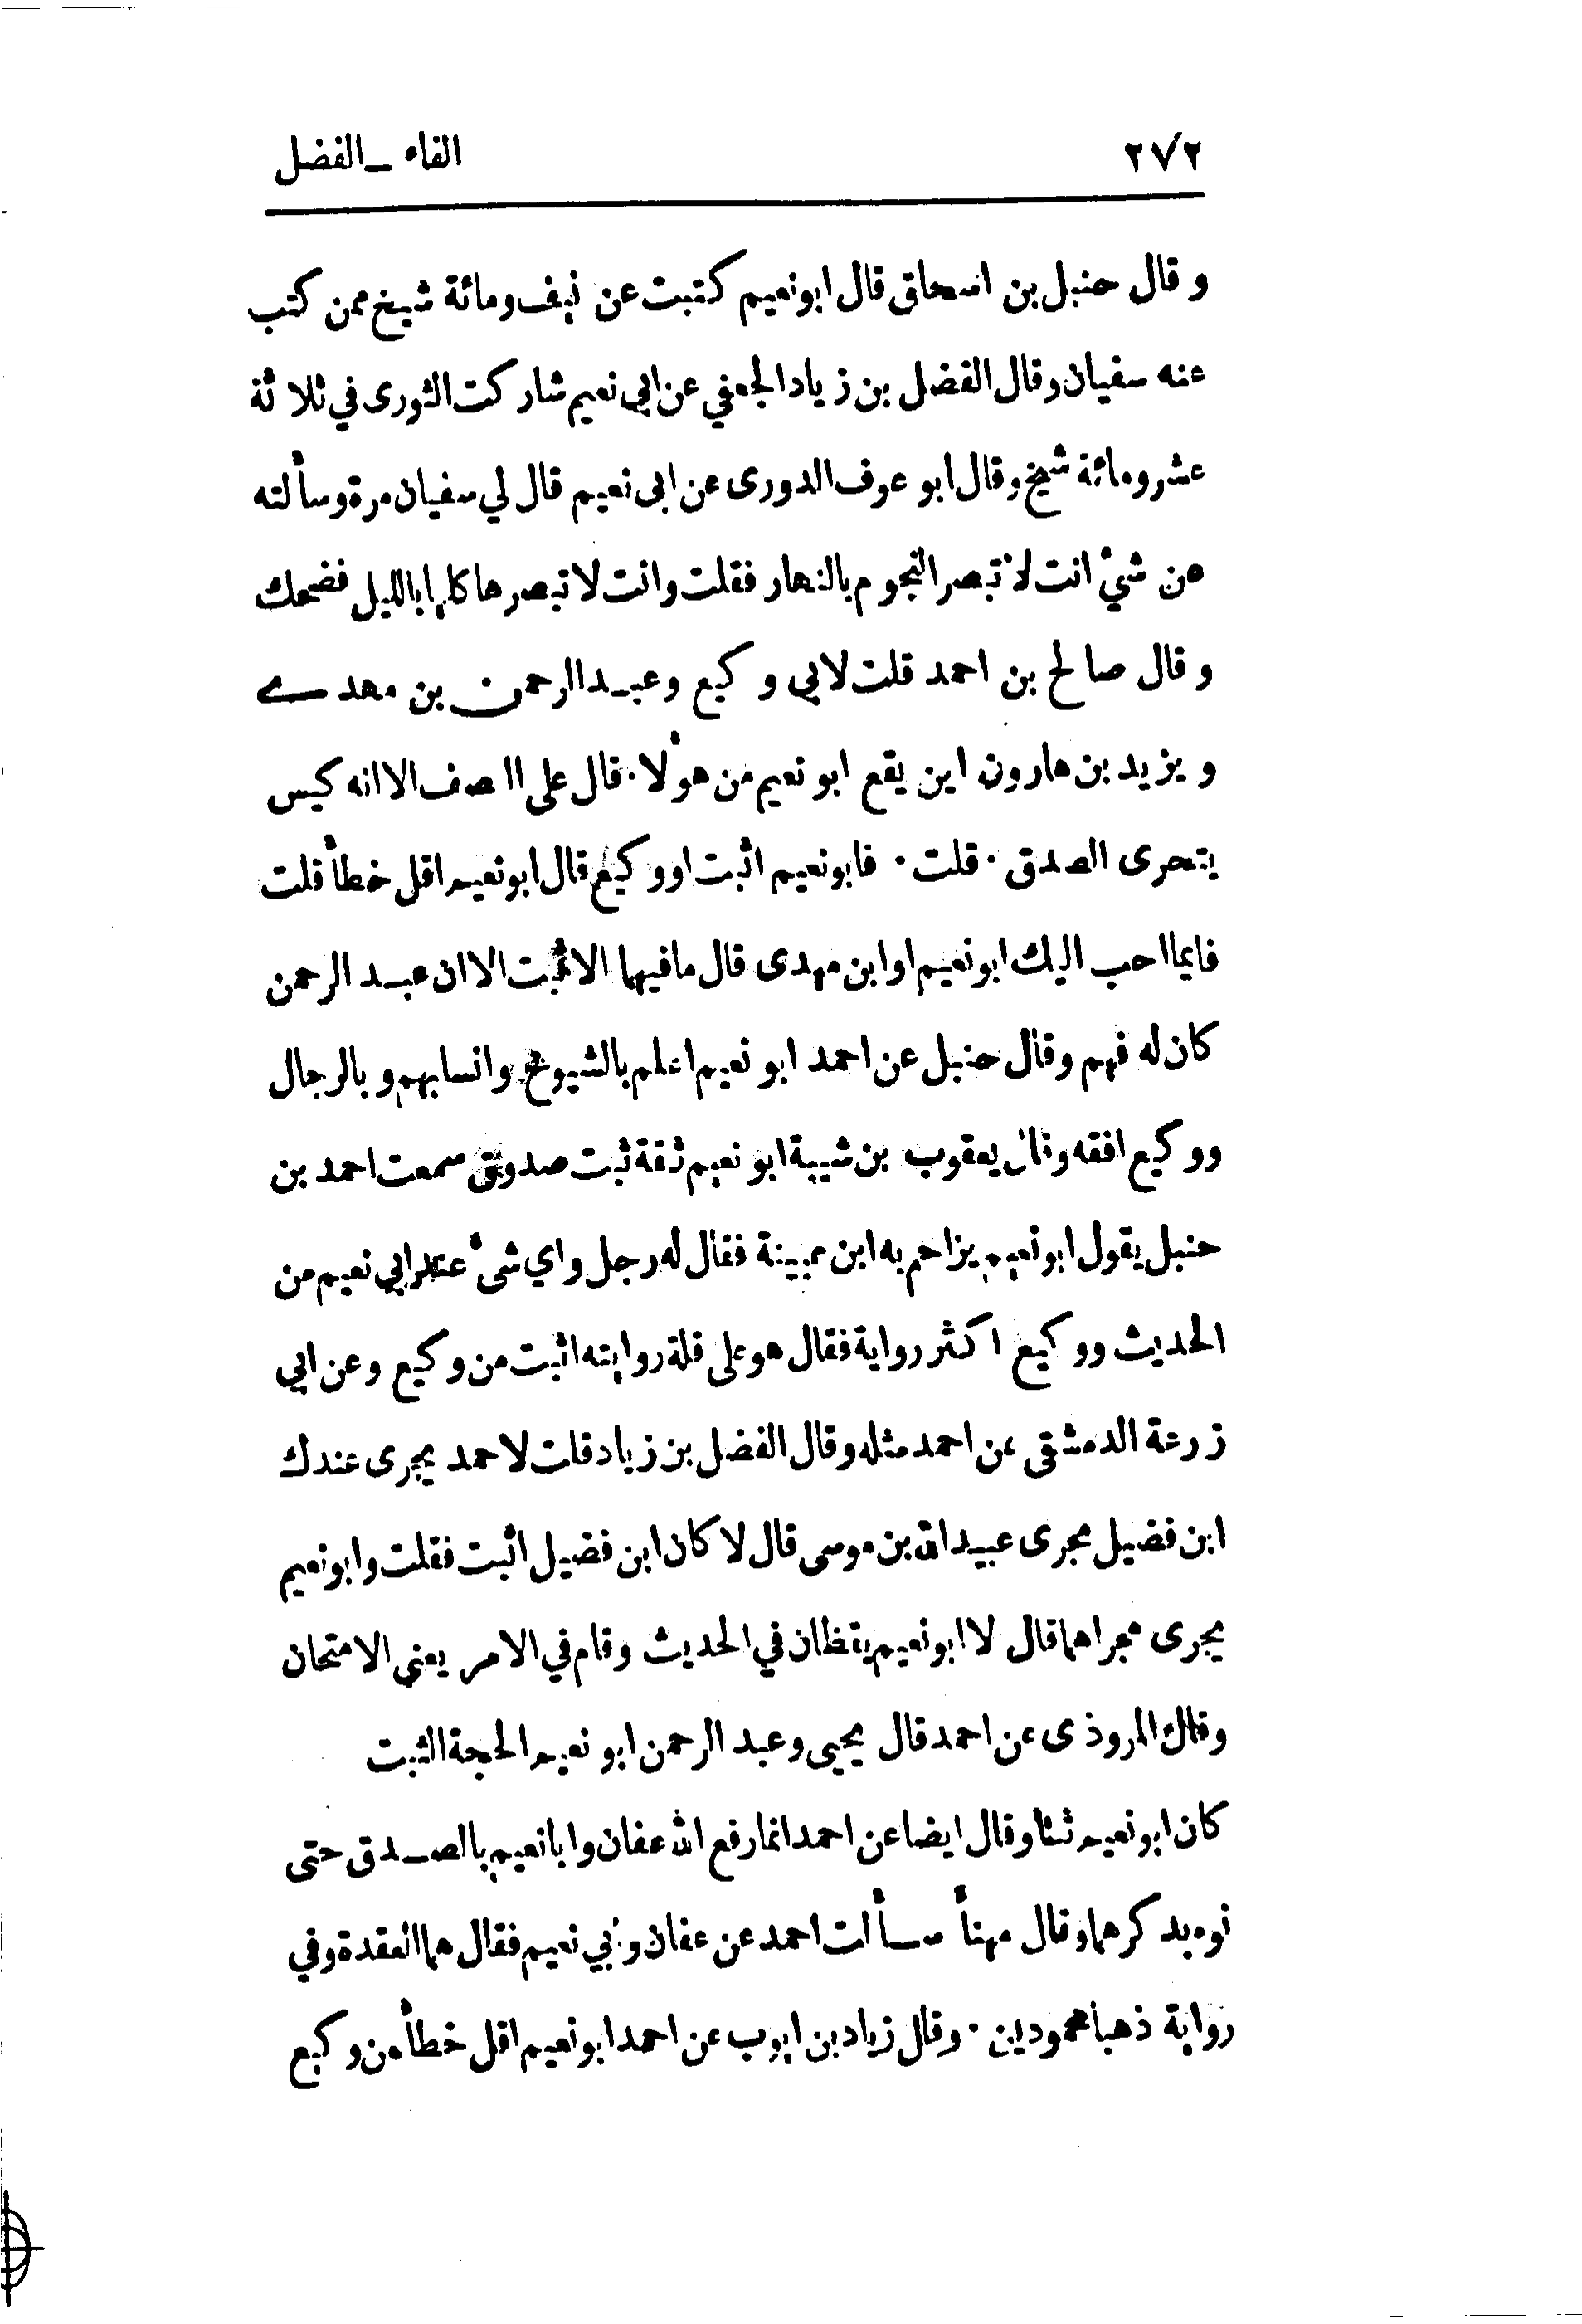 ٢٧٢ الفاء ـ الفضل
وقال حنبل بن اسحاق قال ابو نعيم كتبت عن نيف ومائة شيخ ممن كتب
عنه سفيان وقال الفضل بن زياد الجعفي عن ابي نعيم شاركت الثورى في ثلاثة
عشر ومائة شيخ وقال ابو عوف الدورى عن ابى نعيم قال لي سفيان مرة وسألته
عن شيء انت لا تبصر النجوم بالنهار فقلت وانت لا تبصرها كلها بالليل فضحك
وقال صالح بن احمد قلت لابي وكيع وعبد الرحمن بن مهدے
ويزيد بن هارون اين يقع ابو نعيم من هؤلاء قال على النصف الا انه كيس
يتحرى الصدق · قلت · فابو نعيم اثبت او وكيع قال ابو نعيم اقل خطأ قلت
فايما احب اليك ابو نعيم او ابن مهدى قال ما فيهما الا ثبت الا ان عبد الرحمن
كان له فهم وقال حنبل عن احمد ابو نعيم اعلم بالشيوخ وانسابهم وبالرجال
ووكيع افقه وقال يعقوب بن شيبة ابو نعيم ثقة ثبت صدوق سمعت احمد بن
حنبل يقول ابو نعيم يزاحم به ابن عيينة فقال له رجل واي شىء عند ابي نعيم من
الحديث ووكيع اكثر رواية فقال هو على قلة روايته اثبت من وكيع وعن ابي
زرعة الدمشقى عن احمد مثله وقال الفضل بن زياد قلت لاحمد يجرى عندك
ابن فضيل مجرى عبيد الله بن موسى قال لا كان ابن فضيل اثبت فقلت وابو نعيم
يجرى مجراهما قال لا ابو نعيم يقظان في الحديث وقام في الامر يعنى الامتحان
وقال المروذى عن احمد قال يحيى وعبد الرحمن ابو نعيم الحجة الثبت
كان ابو نعيم ثبتا وقال ايضا عن احمد انما رفع الله عفان وابا نعيم بالصدق حتى
نوه بذكرهما وقال مهنأ سألت احمد عن عفان وابي نعيم فقال هما العقدة وفي
رواية ذهبا محمودين · وقال زياد بن ايوب عن احمد ابو نعيم اقل خطأ من وكيع